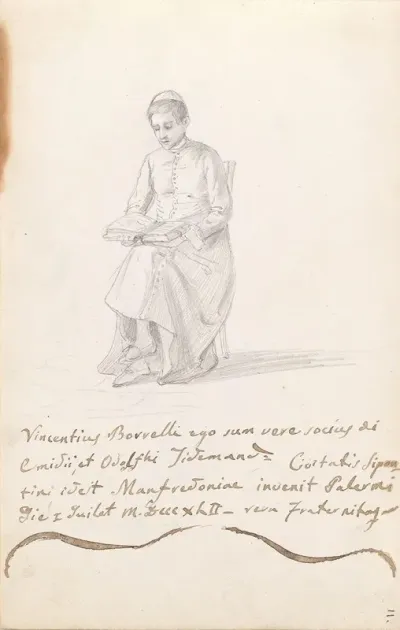 Vincentius Borrelli ego sum vere socius di
Emidii, et Odolfhi Tidemand= Civitatis Sipon=
tini idest Manfredoniae invenit Palermi
Die I Juilet M.DCCCXLII — vera Fraternitas
II